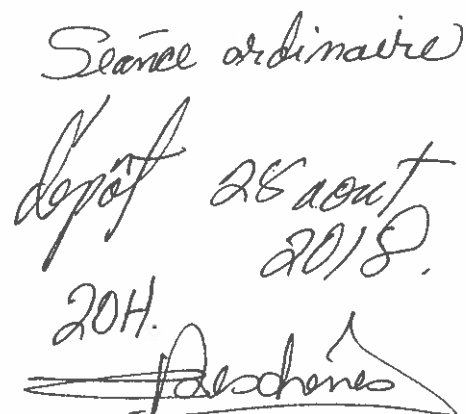 Séance ordinaire
dépôt 28 aout
2018.
20H.
Deschênes